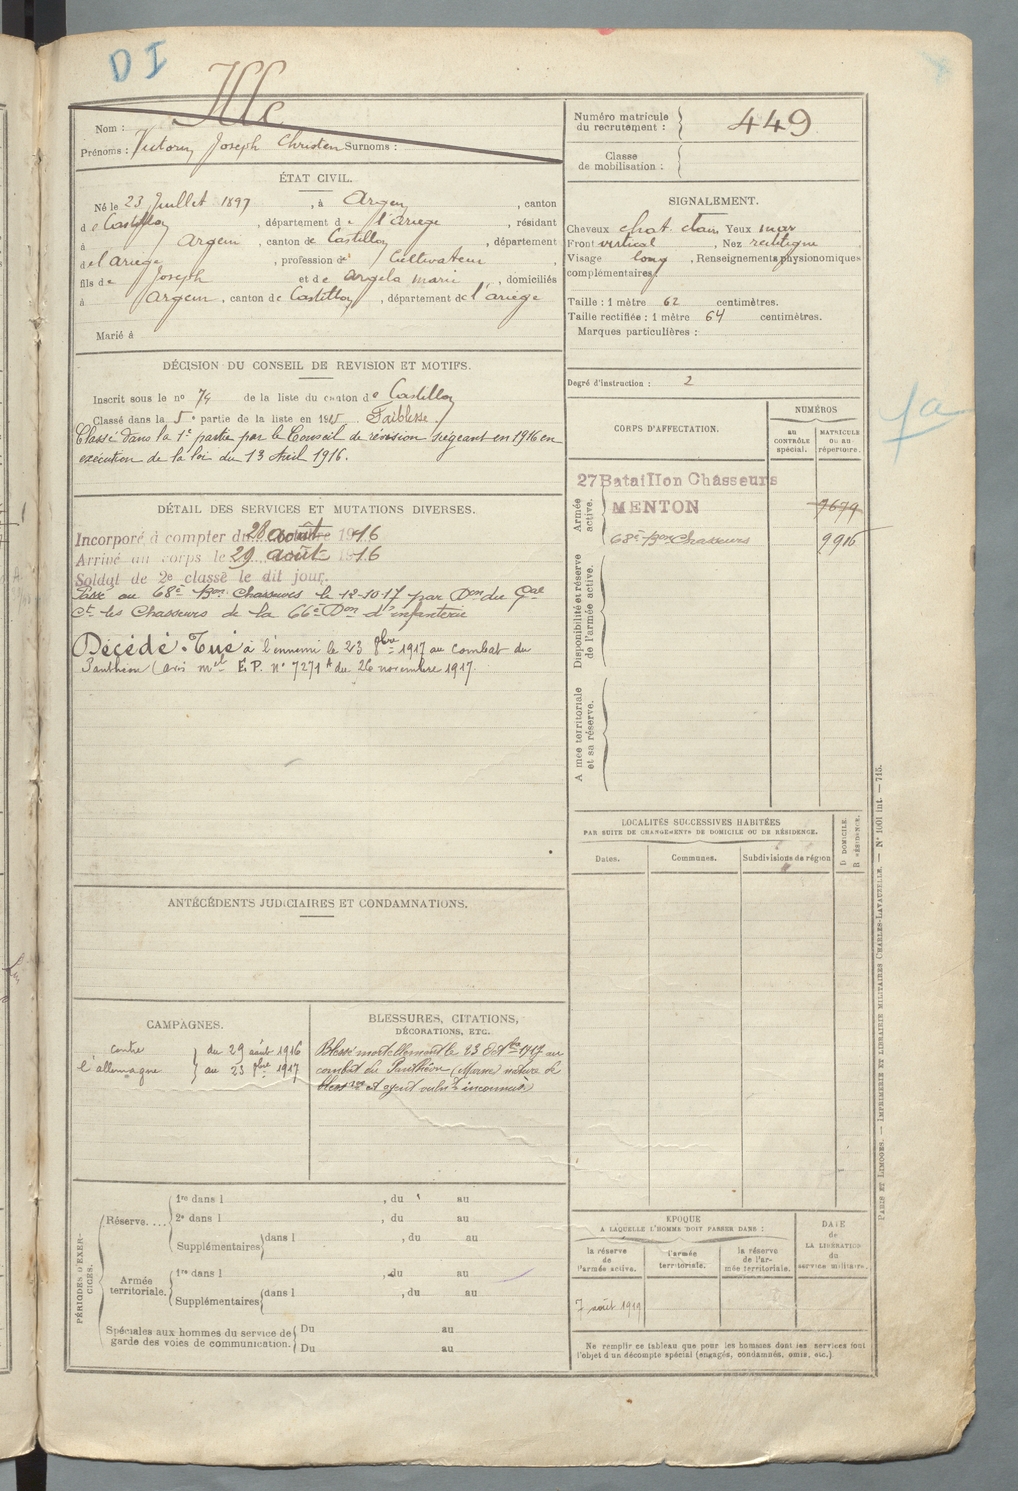 DI
Nom : Ille
Prénoms : Victorin Joseph Christen Surnoms :
Numéro matricule du recrutement : 449
Classe de mobilisation :
ÉTAT CIVIL.
Né le 23 Juillet 1897, à Argein, canton
de Castillon, département de l'Ariège, résidant
à Argein, canton de Castillon, département
de l'Ariège, profession de Cultivateur,
fils de Joseph et de Angela marie, domiciliés
à Argein, canton de Castillon, département de l'ariège
Marié à
SIGNALEMENT.
Cheveux chat. clairs Yeux mar
Front vertical, Nez rectiligne
Visage long, Renseignements physionomiques
complémentaires
Taille : 1 mètre 62 centimètres.
Taille rectifiée : 1 mètre 64 centimètres.
Marques particulières :
Degré d'instruction : 2
DÉCISION DU CONSEIL DE REVISION ET MOTIFS.
Inscrit sous le no 74 de la liste du canton de Castillon
Classé dans la 5e partie de la liste en 1915 Faiblesse
Classé dans la 1e partie par le Conseil de révision siégeant en 1916 en
exécution de la loi du 13 Avril 1916.
CORPS D'AFFECTATION.
NUMÉROS
au CONTRÔLE spécial.
MATRICULE ou au répertoire.
Armée active.
27 Bataillon Chasseurs
MENTON 7679
68e Bon Chasseurs 9916
Disponibilité et réserve de l'armée active.
Armée territoriale et sa réserve.
fa
DÉTAIL DES SERVICES ET MUTATIONS DIVERSES.
Incorporé à compter du 28 août 1916
Arrivé au corps le 29 août 1916
Soldat de 2e classe le dit jour.
Passé au 68e Bon Chasseurs le 12-10-17 par Don du Gal
Ct les Chasseurs de la 66e Don d'infanterie
Décédé. Tué à l'ennemi le 23 8bre 1917 au combat du
Panthéon (avis mel E.P. n° 7271 A du 26 novembre 1917.
LOCALITÉS SUCCESSIVES HABITÉES
PAR SUITE DE CHANGEMENTS DE DOMICILE OU DE RÉSIDENCE.
Dates.
Communes.
Subdivisions de région
D DOMICILE.
R RÉSIDENCE.
ANTÉCÉDENTS JUDICIAIRES ET CONDAMNATIONS.
CAMPAGNES.
contre l'allemagne
du 29 août 1916
au 23 8bre 1917
BLESSURES, CITATIONS, DÉCORATIONS, ETC.
Blessé mortellement le 23 Octbre 1917 au
combat du Panthéon (Marne nature de
blessure et agent vulnt inconnus)
PÉRIODES D'EXERCICES.
Réserve....
1re dans l , du au
2e dans l , du au
Supplémentaires dans l , du au
Armée territoriale.
1re dans l , du au
Supplémentaires dans l , du au
Spéciales aux hommes du service de garde des voies de communication.
Du au
Du au
EPOQUE
A LAQUELLE L'HOMME DOIT PASSER DANS :
la réserve de l'armée active.
l'armée territoriale.
la réserve de l'armée territoriale.
DATE de LA LIBÉRATION du service militaire.
7 août 1919
Ne remplir ce tableau que pour les hommes dont les services font
l'objet d'un décompte spécial (engagés, condamnés, omis, etc.)
PARIS ET LIMOGES. — IMPRIMERIE ET LIBRAIRIE MILITAIRES CHARLES-LAVAUZELLE. — N° 1001 int. — 715.